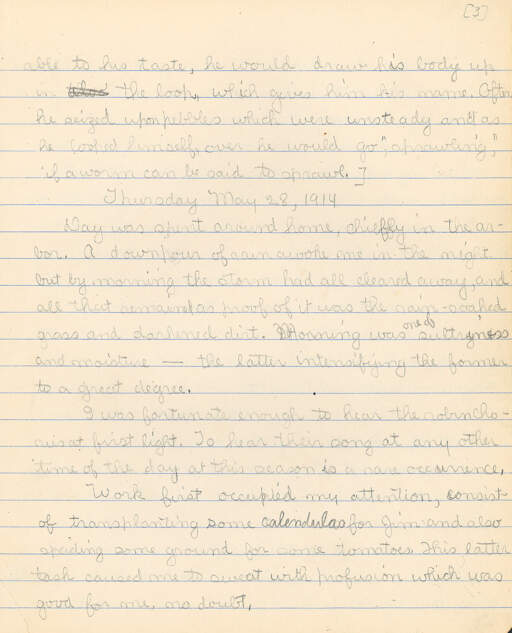 [3]
able to his taste, he would draw his body up
in the loop, which gives him his name. Often
he seized upon pebbles which were unsteady and as
he looped himself over he would go "sprawling,"
if a worm can be said to sprawl.]
Thursday May 28, 1914
Day was spent around home, chieffly in the ar-
bor. A downpour of rain awoke me in the night
but by morning the storm had all cleared away, and
all that remained as proof of it was the rain-soaked
grass and darkened dirt. Morning was one of sultryness
and moisture — the latter intensifying the former
to a great degree.
I was fortunate enough to hear the robin cho-
rus at first light. To hear their song at any other
time of the day at this season is a rare occurrence.
Work first occupied my attention, consist-
of transplanting some calendulas for Jim and also
spading some ground for some tomatoes. This latter
task caused me to sweat with profusion which was
good for me, no doubt.